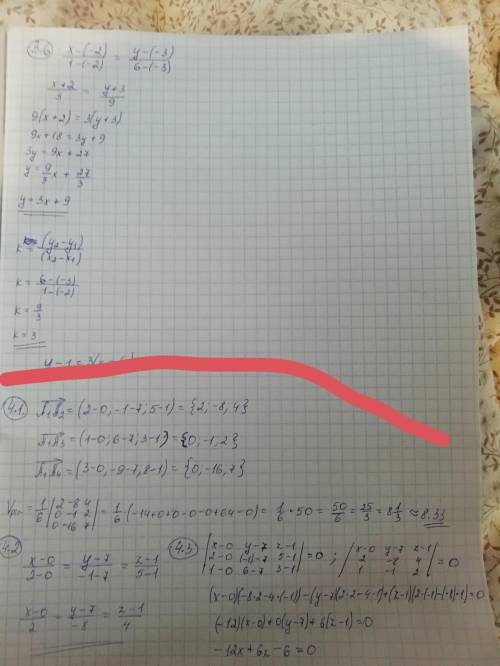 3.6 (x-(-2))/(1-(-2)) = (y-(-3))/(6-(-3))
(x+2)/3 = (y+3)/9
9(x+2) = 3(y+3)
9x+18 = 3y+9
3y = 9x+27
y = 9/3 x + 27/3
y + 3x + 9
k = (y2-y1)/(x2-x1)
k = (6-(-3))/(1-(-2))
k = 9/3
k = 3
4.1. A1A2 = (2-0, -1-7, 5-1) = {2, -8, 4}
A1A3 = (1-0, 6-7, 3-1) = {0, -1, 2}
A1A4 = (3-0, -9-7, 8-1) = {0, -16, 7}
= 1/6 |2 -8 4; 0 -1 2; 0 -16 7| = 1/6 (-14+0+0-0-0+64-0) = 1/6 * 50 = 50/6 = 25/3 = 8 1/3 ≈ 8,33
4.2 (x-0)/(2-0) = (y-7)/(-1-7) = (z-1)/(5-1)
(x-0)/2 = (y-7)/-8 = (z-1)/4
4.3 |x-0 y-7 z-1; 2-0 (-1)-7 5-1; 1-0 6-7 3-1| = 0 ; |x-0 y-7 z-1; 2 -8 4; 1 -1 2| = 0
(x-0)(-8·2-4·(-1))-(y-7)(2·2-4·1)+(z-1)(2·(-1)-(-8)·1)=0
(-12)(x-0)+0(y-7)+6(z-1)=0
-12x+6z-6=0